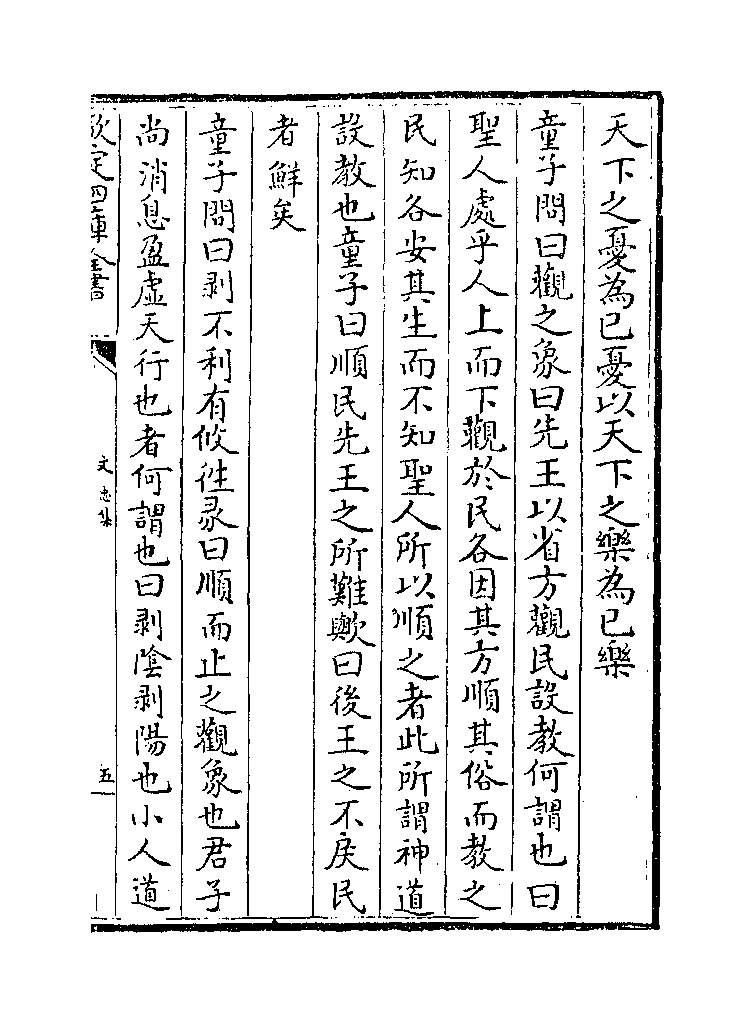 天下之憂為已憂以天下之樂為已樂
童子問曰觀之象曰先王以省方觀民設教何謂也曰
聖人處乎人上而下觀於民各因其方順其俗而教之
民知各安其生而不知聖人所以順之者此所謂神道
設教也童子曰順民先王之所難歟曰後王之不戾民
者鮮矣
童子問曰剥不利有攸往彖曰順而止之觀象也君子
尚消息盈虛天行也者何謂也曰剥陰剥陽也小人道
欽定四庫全書
文忠集
五